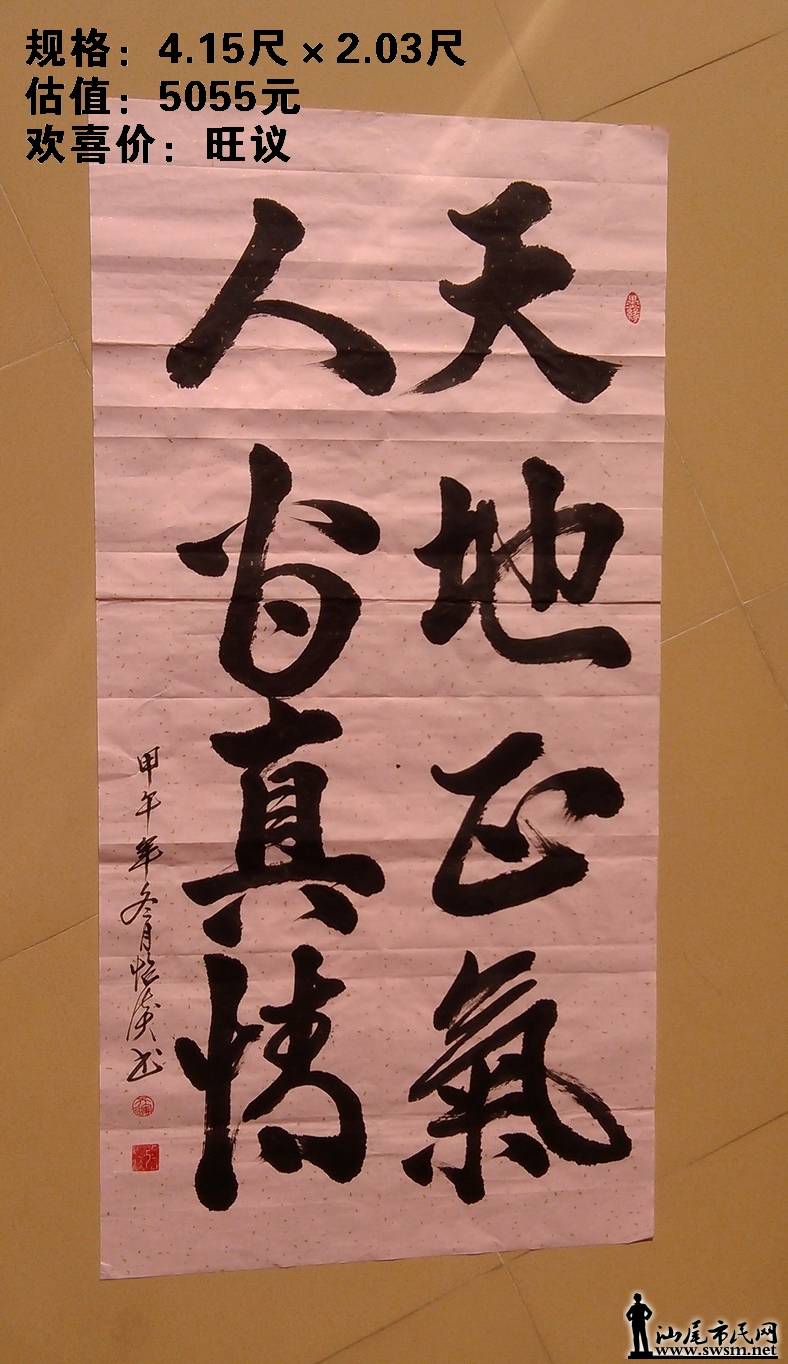 规格：4.15尺×2.03尺
估值：5055元
欢喜价：旺议
天地正氣
人真情
甲午年冬月书
汕尾市民网
www.swsm.net